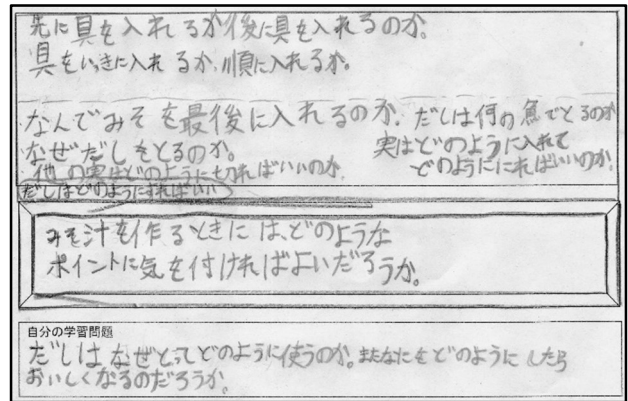 先に具を入れるか後に具を入れるのか。
具をいっきに入れるか、順に入れるか。
なんでみそを最後に入れるのか。
だしは何の魚でとるのか
なぜだしをとるのか。
実はどのように入れて
どのようににればいいのか。
他の実はどのように切ればいいのか。
だしはどのようにすればいい
みそ汁を作るときには、どのような
ポイントに気を付ければよいだろうか。
自分の学習問題
だしはなぜとってどのように使うのか。またなにをどのようにしたら
おいしくなるのだろうか。